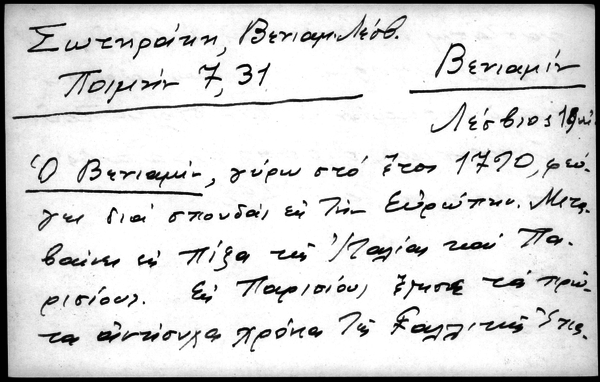 Σωτηράκη, Βενιαμ. Λέσβ.
Ποιμήν 7, 31
Βενιαμίν
Λέσβιος 19
Ὁ Βενιαμίν, γύρω στό ἔτος 1790, φεύ-
γει διά σπουδάς εἰς τήν Εὐρώπην. Μετα-
βαίνει εἰς Πίζα τῆς Ἰταλίας καί Πα-
ρισίους. Εἰς Παρισίους ἔζησε τά πρῶ-
τα ἀνήσυχα χρόνια τῆς Γαλλικῆς Ἐπα-